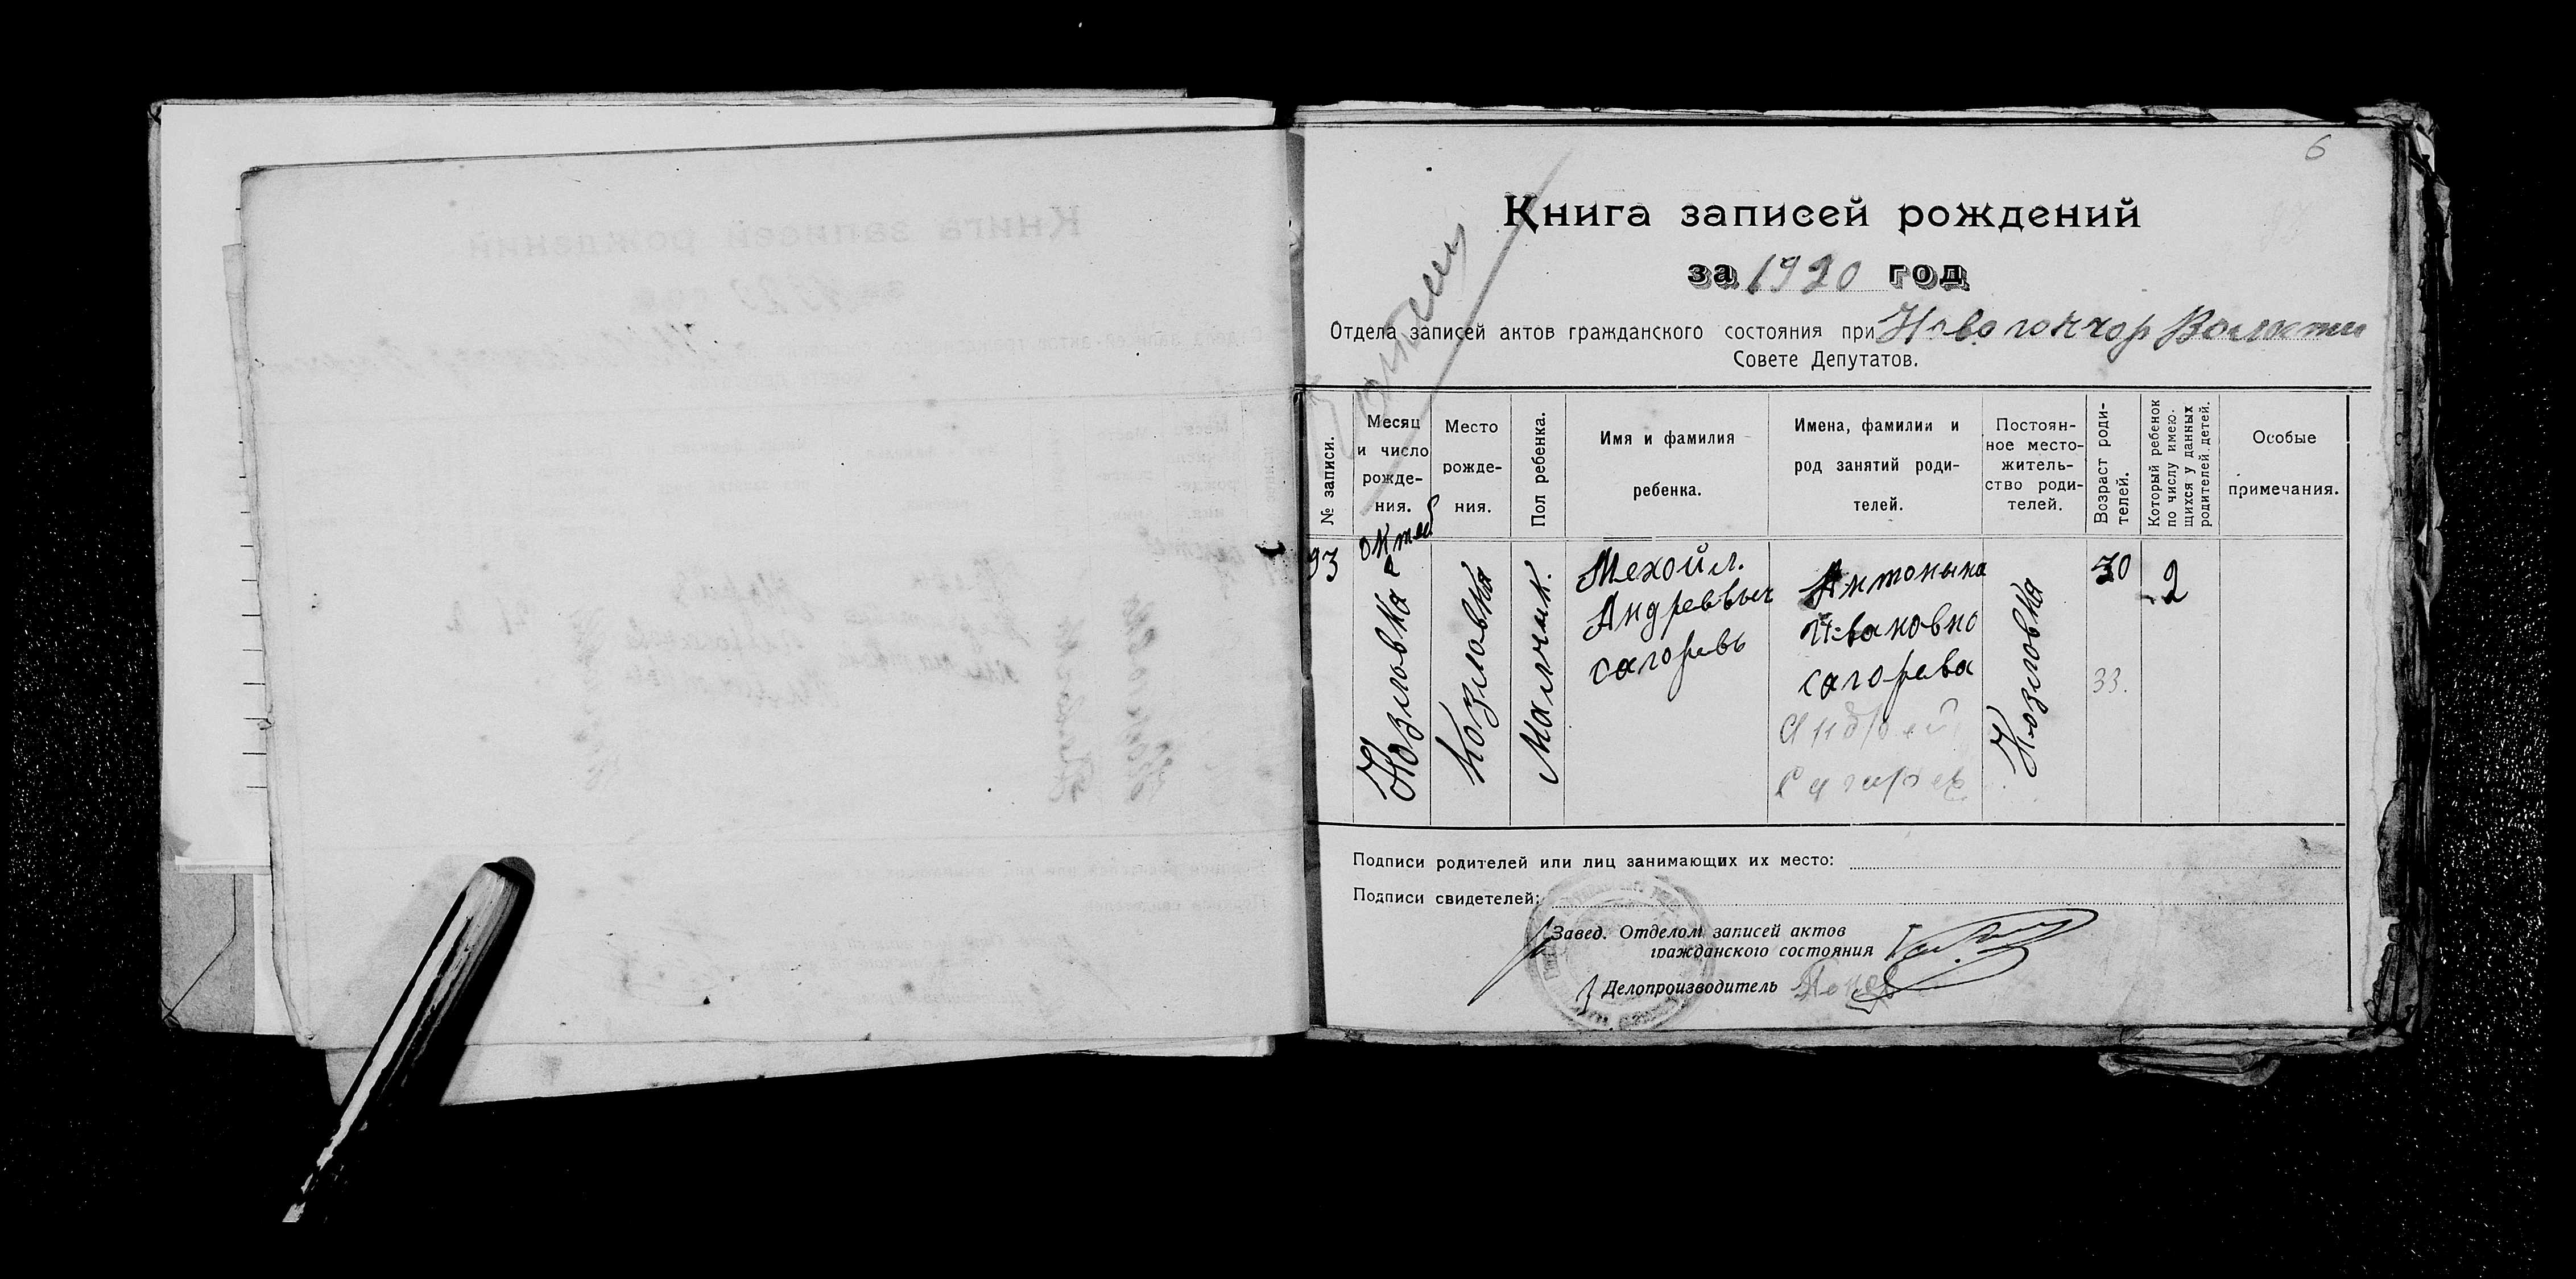 6
Книга записей рождений
за 1920 год
Отдела записей актов гражданского состояния при
Совете Депутатов.
№ записи.
Месяц
и число
рожде-
ния.
Место
рожде-
ния.
Пол ребенка.
Имя и фамилия
ребенка.
Имена, фамилии и
род занятий роди-
телей.
Постоян-
ное место-
житель-
ство роди-
телей.
Возраст роди-
телей.
Который ребенок
по числу имею-
щихся у данных
родителей детей.
Особые
примечания.
93
Козловка
Козловка
Малчик.
Мехойл.
Андреевыч
сагоревь
Антонына
Ивановно
сагорева
Андрей
Козловка
30
33.
2
Подписи родителей или лиц занимающих их место:
Подписи свидетелей:
Завед. Отделом записей актов
гражданского состояния
Делопроизводитель